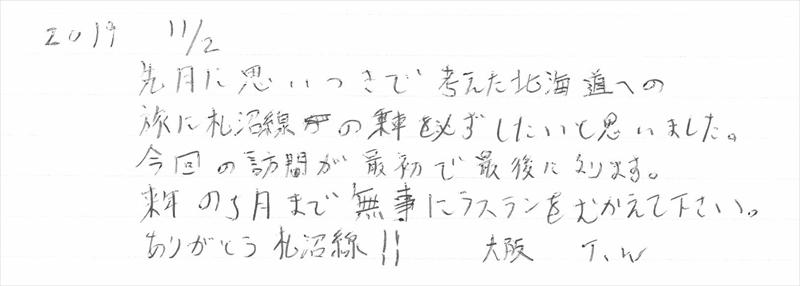 2019 11/2
先月に思いつきで考えた北海道への
旅に札沼線の乗車を必ずしたいと思いました。
今回の訪問が最初で最後になります。
来年の5月まで無事にラスランをむかえて下さい。
ありがとう札沼線!! 大阪 T.W